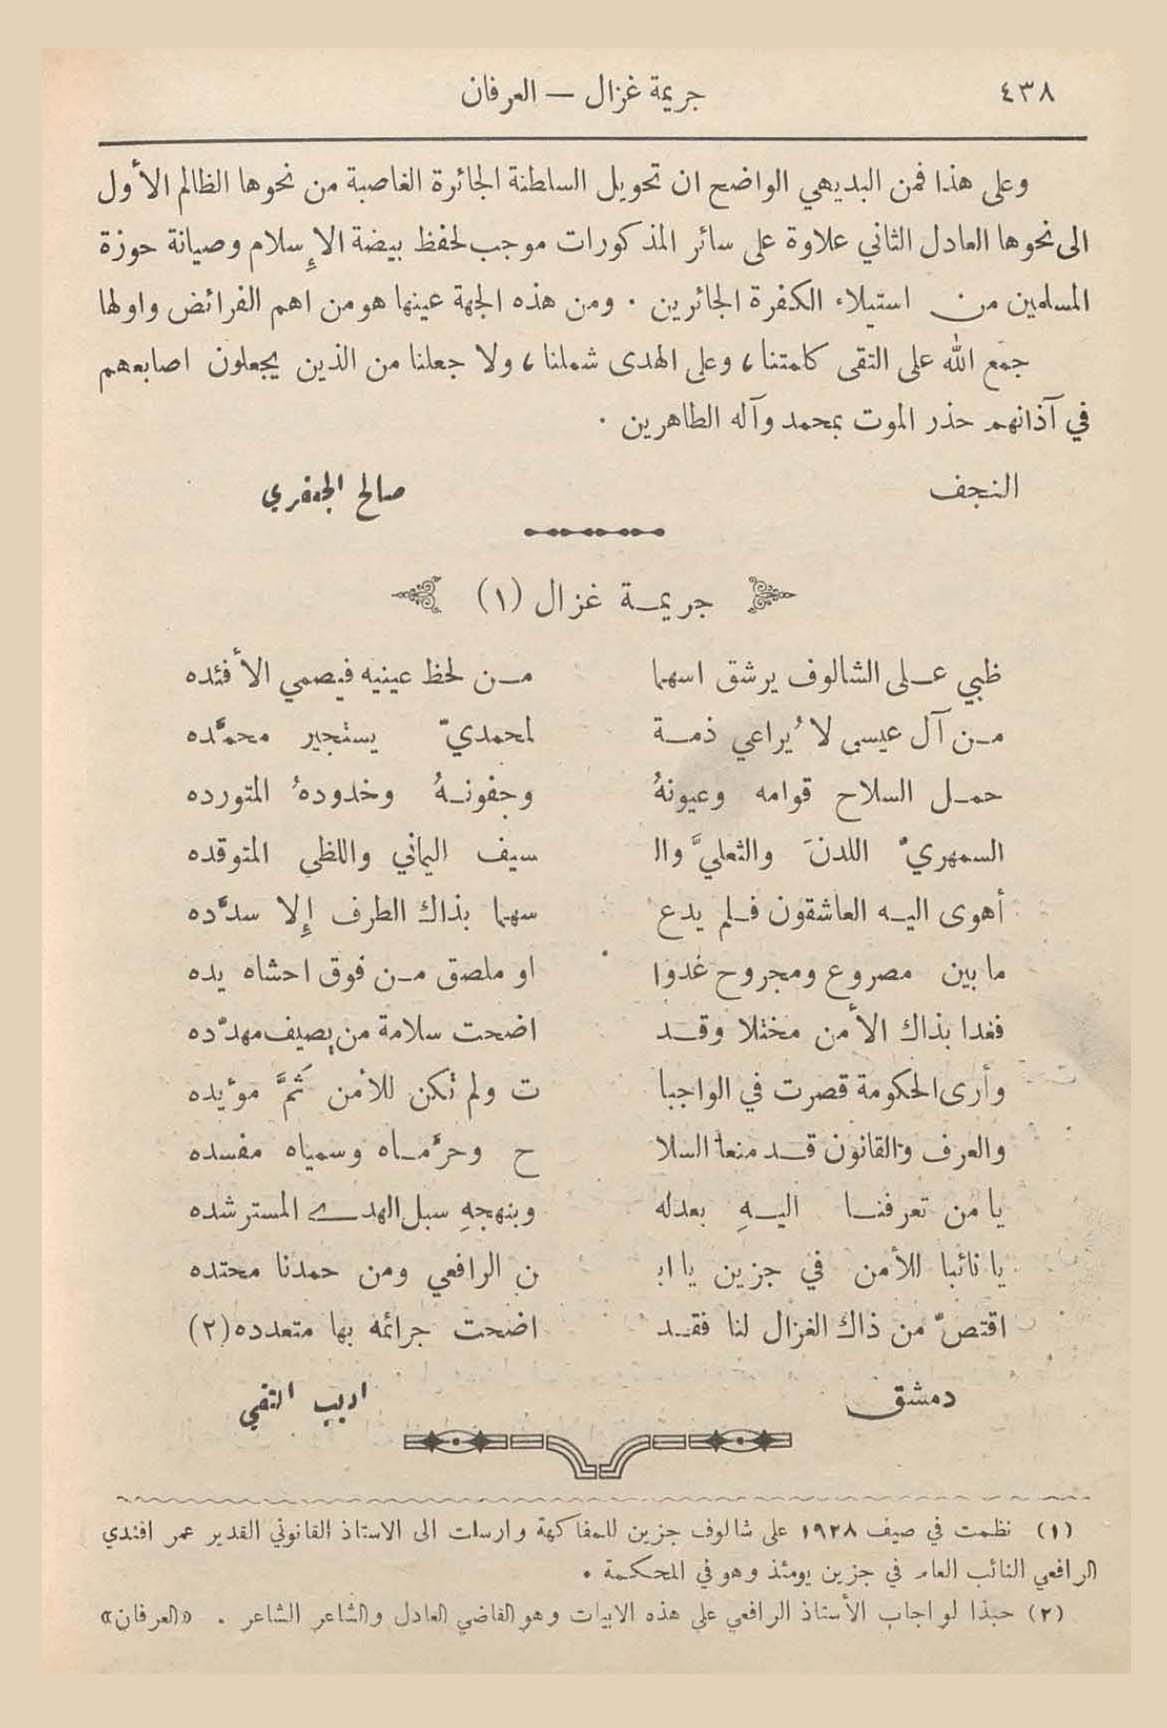 ٤٣٨
جريمة غزال — العرفان
وعلى هذا فمن البديهي الواضح ان تحويل السلطنة الجائرة الغاصبة من نحوها الظالم الأول
الى نحوها العادل الثاني علاوة على سائر المذكورات موجب لحفظ بيضة الإسلام وصيانة حوزة
المسلمين من استيلاء الكفرة الجائرين . ومن هذه الجهة عينها هو من اهم الفرائض واولها
جمع الله على التقى كلمتنا ، وعلى الهدى شملنا ، ولا جعلنا من الذين يجعلون اصابعهم
في آذانهم حذر الموت بمحمد وآله الطاهرين .
النجف صالح الجعفري
جريمة غزال (١)
ظبي على الشالوف يرشق اسهما من لحظ عينيه فيصمي الأفئده
من آل عيسى لا يُراعي ذمة لمحمديّ يستجير محمَّده
حمل السلاح قوامه وعيونهُ وجفونهُ وخدودهُ المتورده
السمهريّ اللدنَ والثعليَّ وال سيف اليماني واللظى المتوقده
أهوى اليه العاشقون فلم يدع سهما بذاك الطرف إلا سدَّده
ما بين مصروع ومجروح غدوا او ملصق من فوق احشاه يده
فغدا بذاك الأمن مختلا وقد اضحت سلامة من يصيف مهدّده
وأرى الحكومة قصرت في الواجبا ت ولم تكن للأمن ثَمَّ مؤيده
والعرف والقانون قد منعا السلا ح وحرَّماه وسمياه مفسده
يا من تعرفنا اليهِ بعدله وبنهجهِ سبل الهدى المسترشده
يا نائبا للأمن في جزين يا اب ن الرافعي ومن حمدنا محتده
اقتصّ من ذاك الغزال لنا فقد اضحت جرائمه بها متعدده (٢)
دمشق اديب التقي
(١) نظمت في صيف ١٩٢٨ على شالوف جزين للمفاكهة وارسلت الى الاستاذ القانوني القدير عمر افندي
الرافعي النائب العام في جزين يومئذ وهو في المحكمة .
(٢) حبذا لو اجاب الأستاذ الرافعي على هذه الابيات وهو القاضي العادل والشاعر الشاعر . «العرفان»